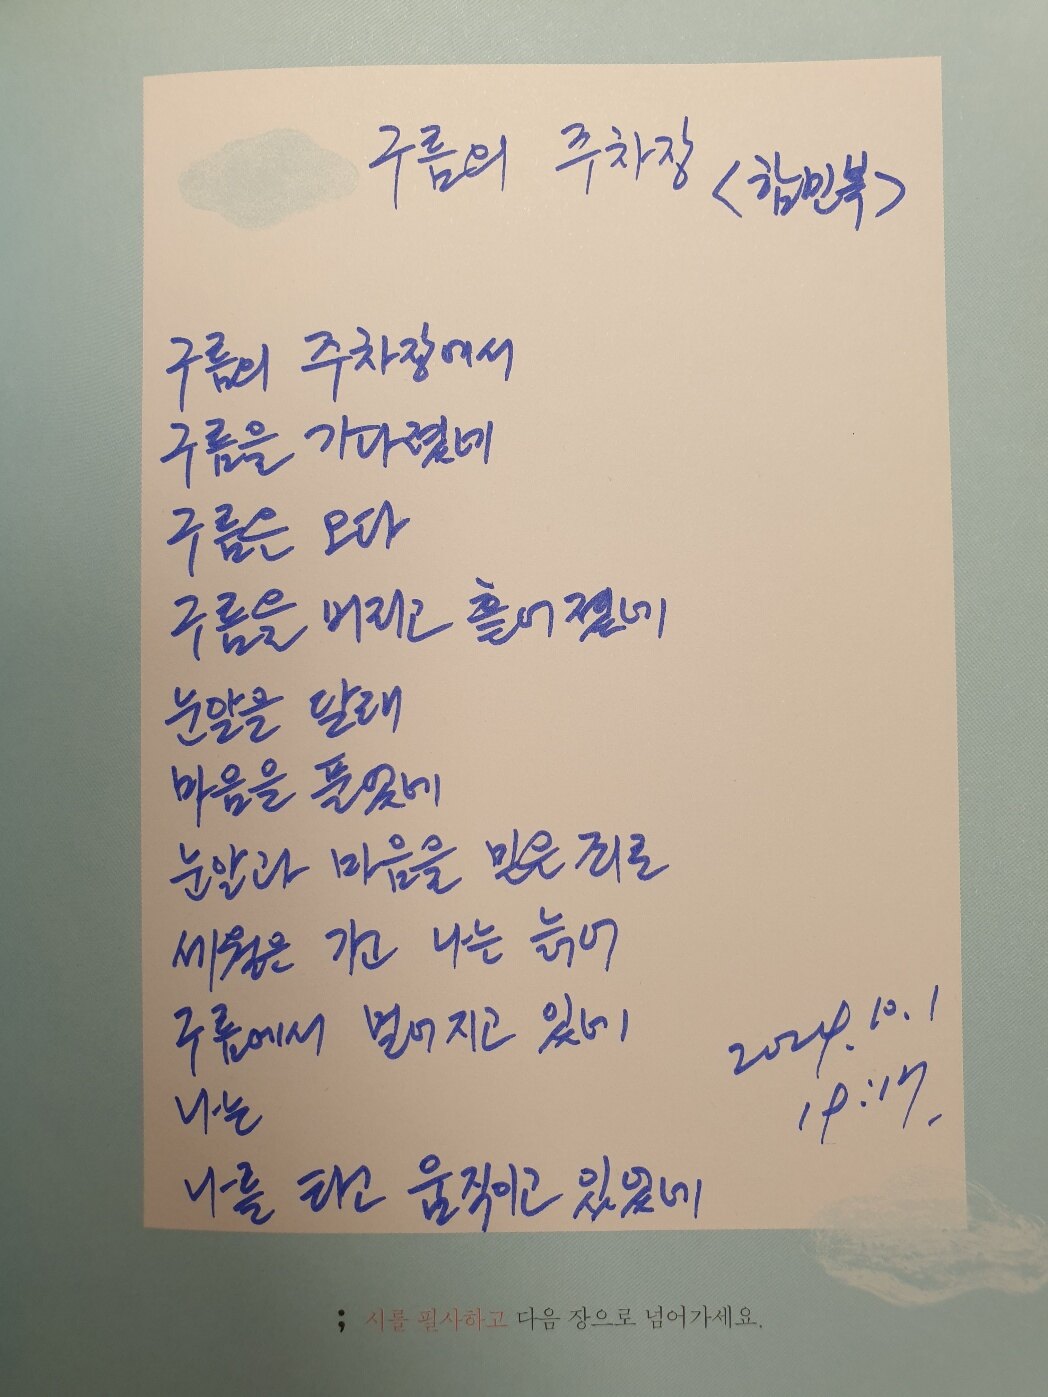 구름의 주차장 <함민복>
구름의 주차장에서
구름을 기다렸네
구름은 오다
구름을 버리고 흩어졌네
눈알을 달래
마음을 풀었네
눈알과 마음을 믿은 죄로
세월은 가고 나는 늙어
구름에서 멀어지고 있네
나는
나를 타고 움직이고 있었네
2024. 10. 1
19:17.
; 시를 필사하고 다음 장으로 넘어가세요.